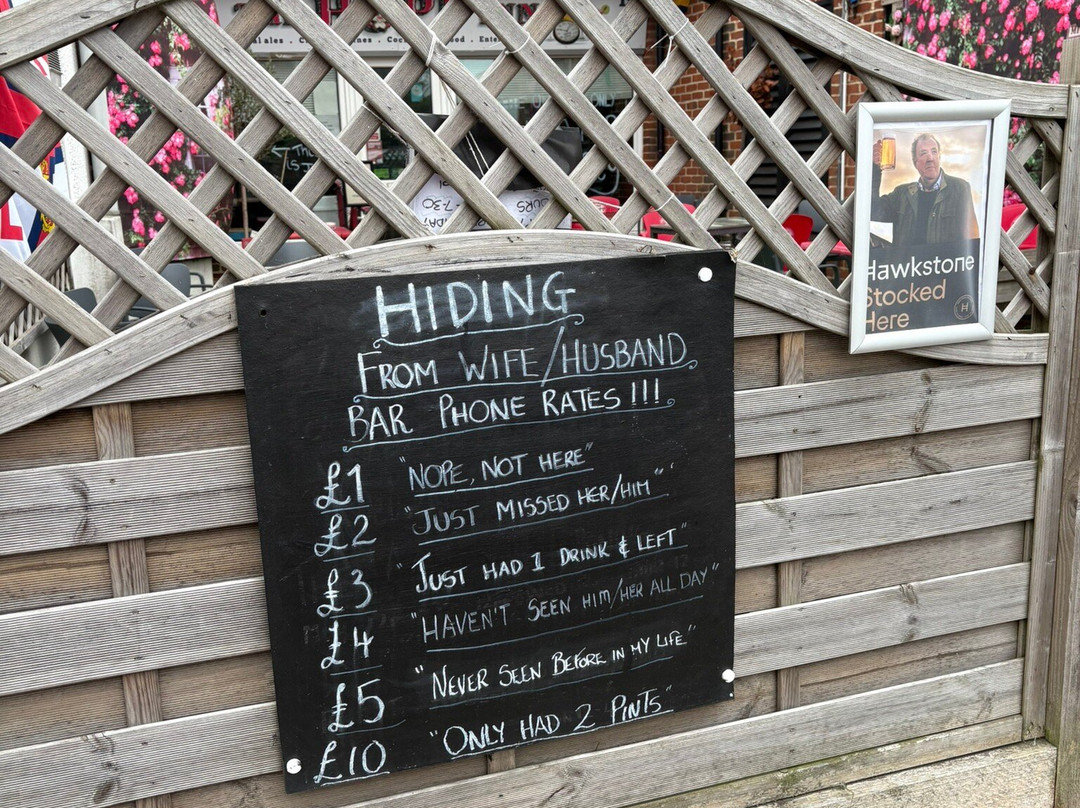 HIDING
FROM WIFE/HUSBAND
BAR PHONE RATES!!!
£1 "NOPE, NOT HERE"
£2 "JUST MISSED HER/HIM"
£3 "JUST HAD 1 DRINK & LEFT"
£4 "HAVEN'T SEEN HIM/HER ALL DAY"
£5 "NEVER SEEN BEFORE IN MY LIFE"
£10 "ONLY HAD 2 PINTS"
Hawkstone
Stocked
Here
H